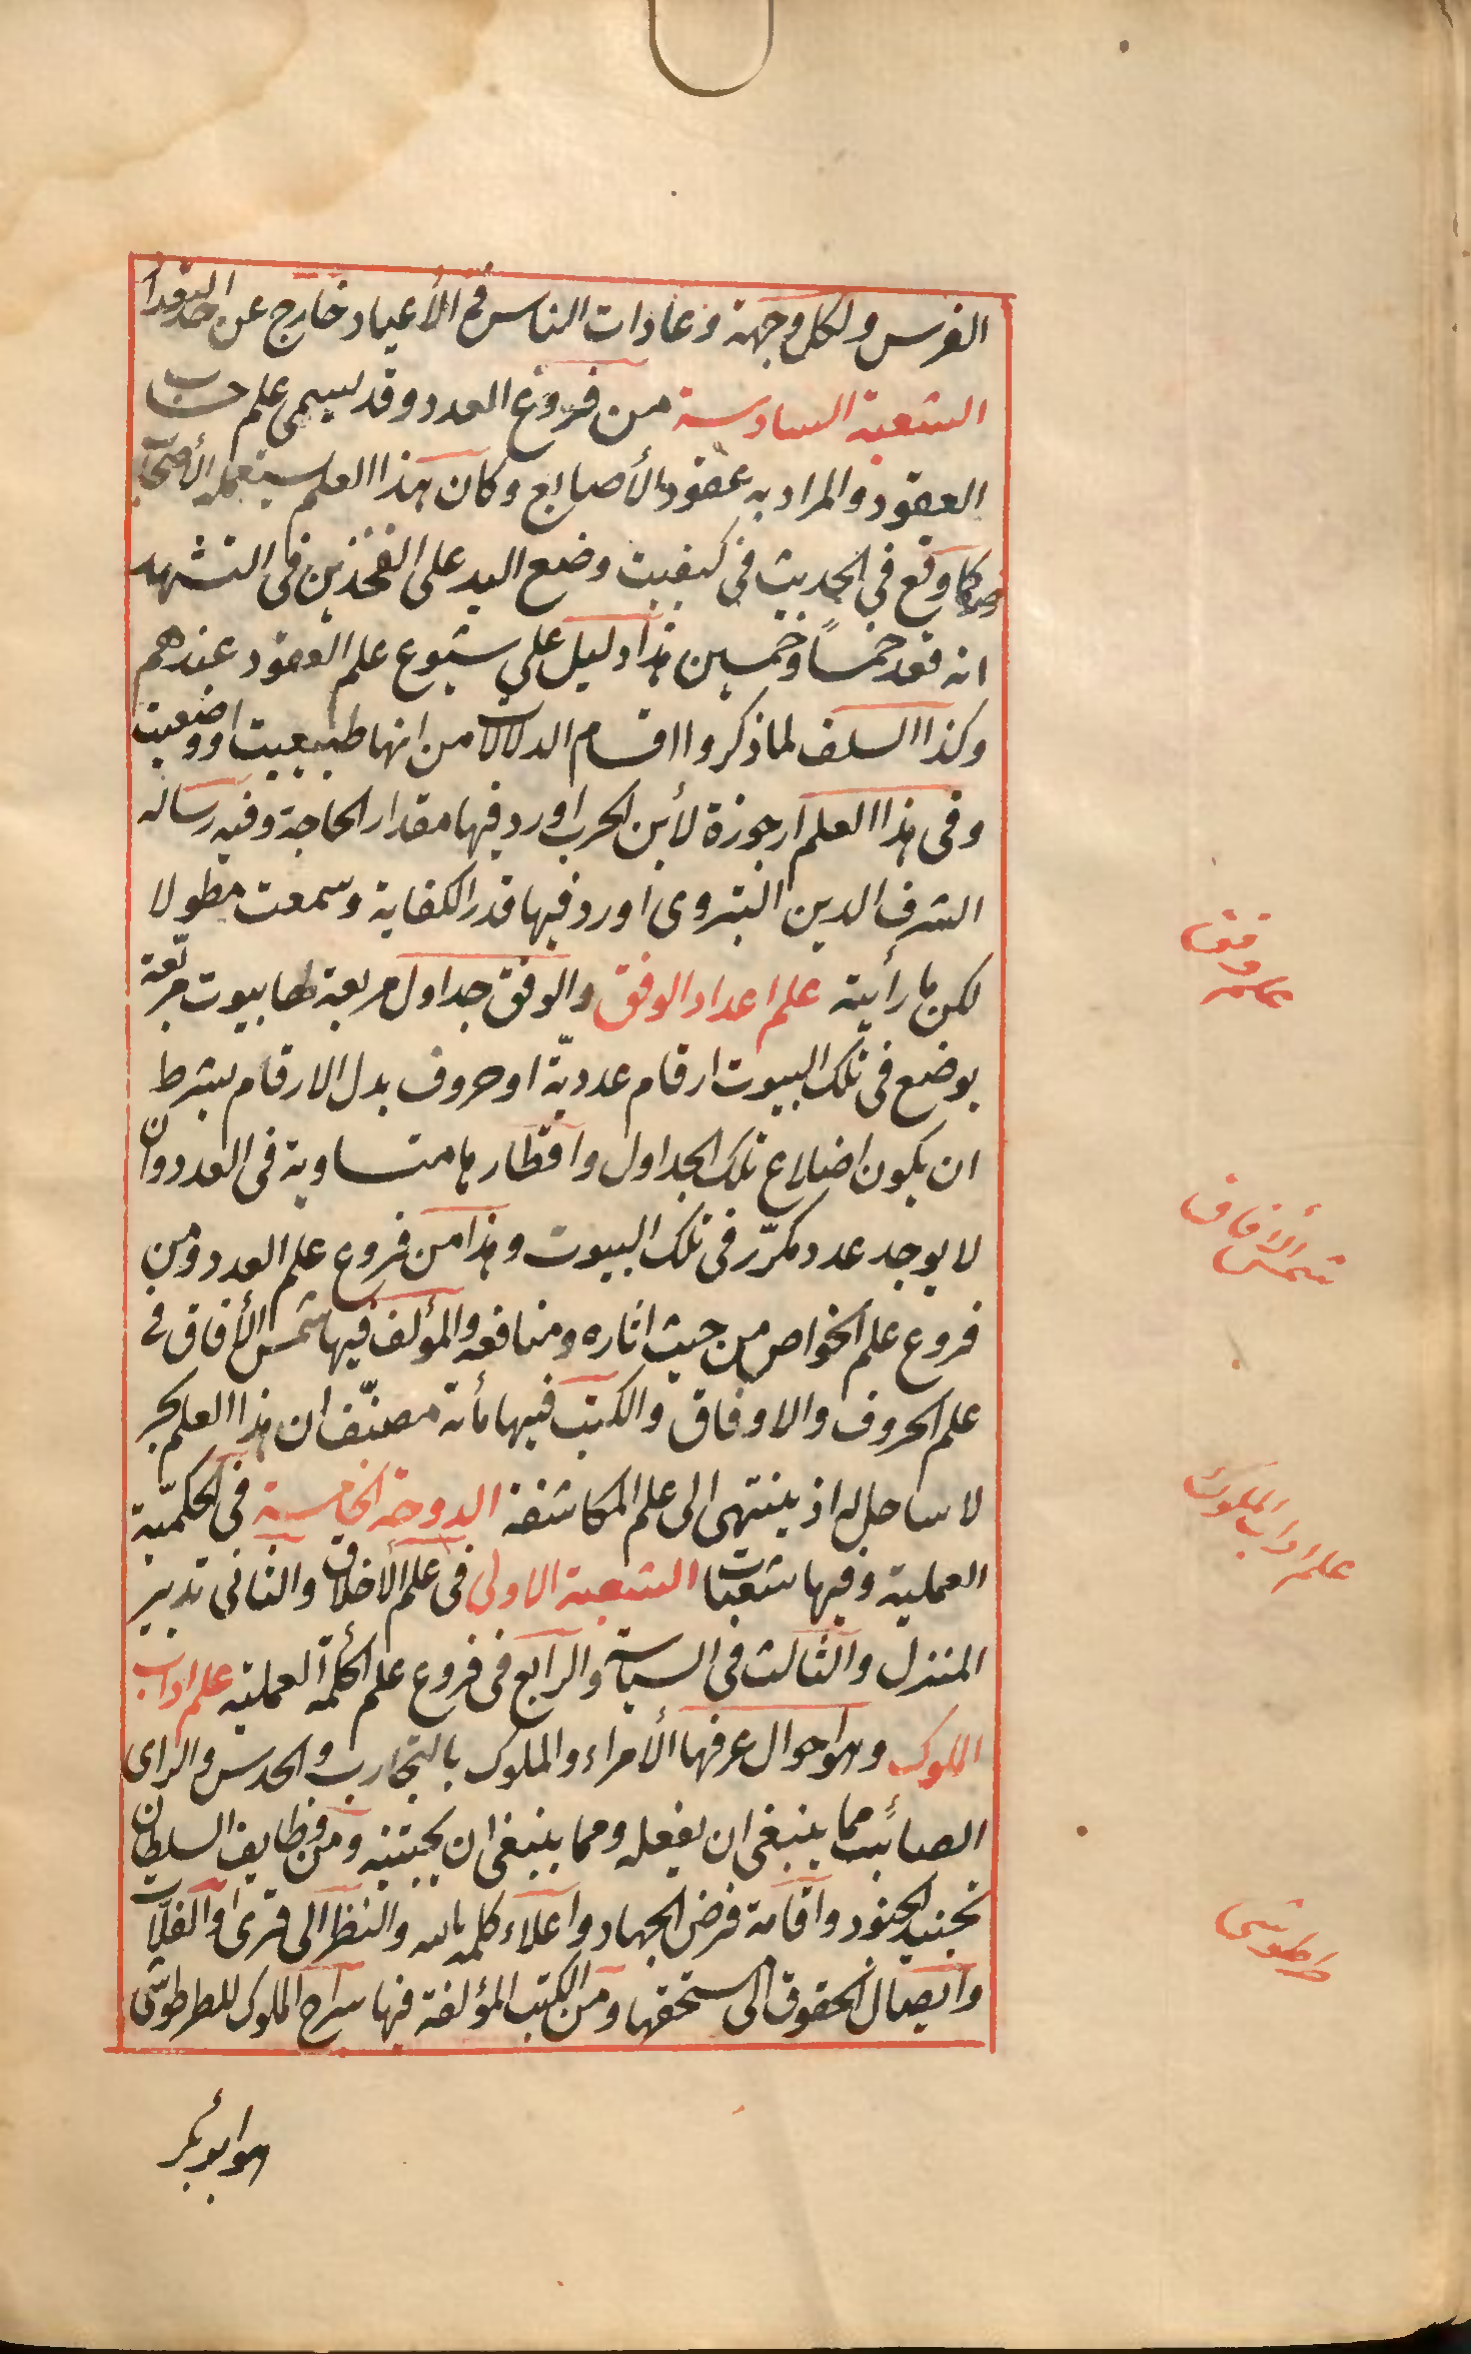 الفرس ولكل وجهة وعادات الناس في الأعياد خارج عن حد التعداد
الشعبة السادسة من فروع العدد وقد يسمى علم حساب
العقود والمراد به عقود الأصابع وكان هذا العلم يستعمله الأصحاب
كما وقع في الحديث في كيفيت وضع اليد على الفخذين في التشهد
انه قعد خمساً وخمسين هذا دليل على شيوع علم العقود عندهم
وكذا السلف لما ذكروا اقسام الدلالات من انها طبيعيت او وضعيت
وفي هذا العلم ارجوزة لأبن الحرب اورد فيها مقدار الحاجة وفيه رساله
الشرف الدين اليزدى اورد فيها قدر الكفاية وسمعت مطولا
لكن ما رأيته علم اعداد الوفق والوفق جداول مربعة لها بيوت مربّعة
يوضع في تلك البيوت ارقام عدديّة او حروف بدل الارقام بشرط
ان يكون اضلاع تلك الجداول واقطارها متساوية في العدد وان
لا يوجد عدد مكرّر في تلك البيوت وهذا من فروع علم العدد ومن
فروع علم الخواص من حيث اثاره ومنافعه والمؤلف فيها شمس الأفاق في
علم الحروف والاوفاق والكتب فيها مأته مصنّف ان هذا العلم بحر
لا ساحل له اذ ينتهى الى علم المكاشفة الدوحة الخامسة في الحكميّة
العملية وفيها شعبات الشعبة الاولى في علم الأخلاق والثانى تدبير
المنزل والثالث في السياسة والرابع في فروع علم الحكمة العملية علم اداب
الملوك وهو احوال عرفها الأمراء والملوك بالتجارب والحدس والراى
الصائب مما ينبغى ان يفعله ومما ينبغى ان يجتنبه ومن وظايف السلطان
تجنيد الجنود واقامة فرض الجهاد واعلاء كلمة الله والنظر الى قرى والفلات
وايصال الحقوق الى مستحقها ومن الكتب المؤلفة فيها سراج الملوك للطرطوشى
هو ابو بكر
علم وفق
شمس الأفاق
علم اداب الملوك